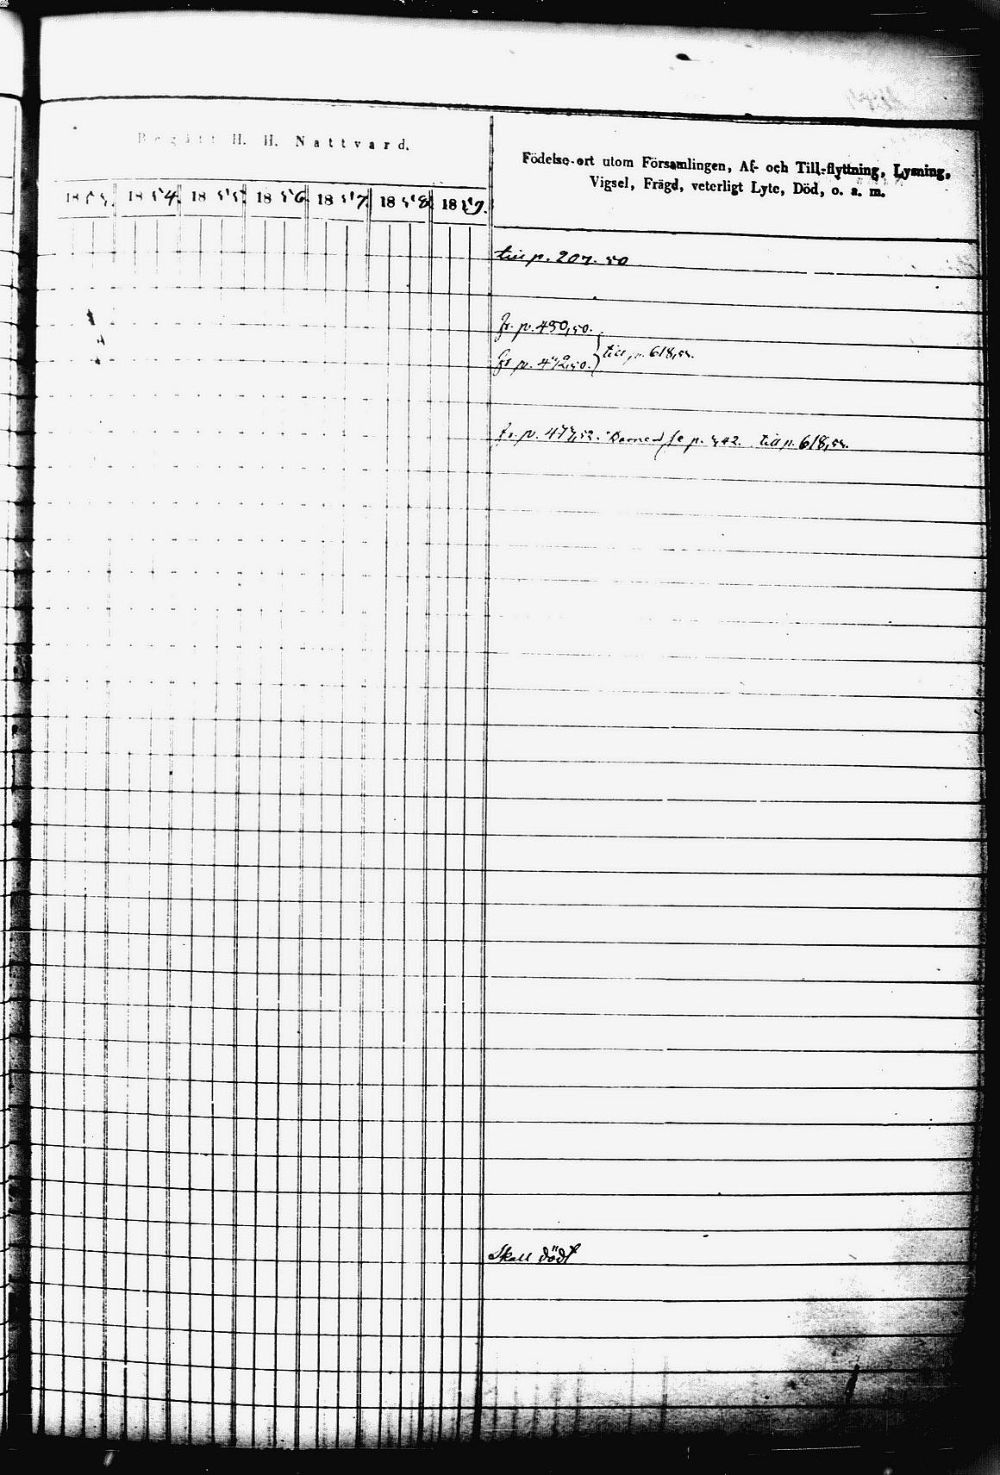 Begått H. H. Nattvard.
Födelse-ort utom Församlingen, Af- och Till-flyttning, Lysning,
Vigsel, Frägd, veterligt Lyte, Död, o. a. m.
1853. 1854. 1855. 1856. 1857. 1858. 1859.
till p. 207. 50
fr. p. 450,50.
fr p. 472,50. } till p. 618,58.
fr. p. 477,52. Barnen se p. 542. till p. 618,58.
Skall dödt